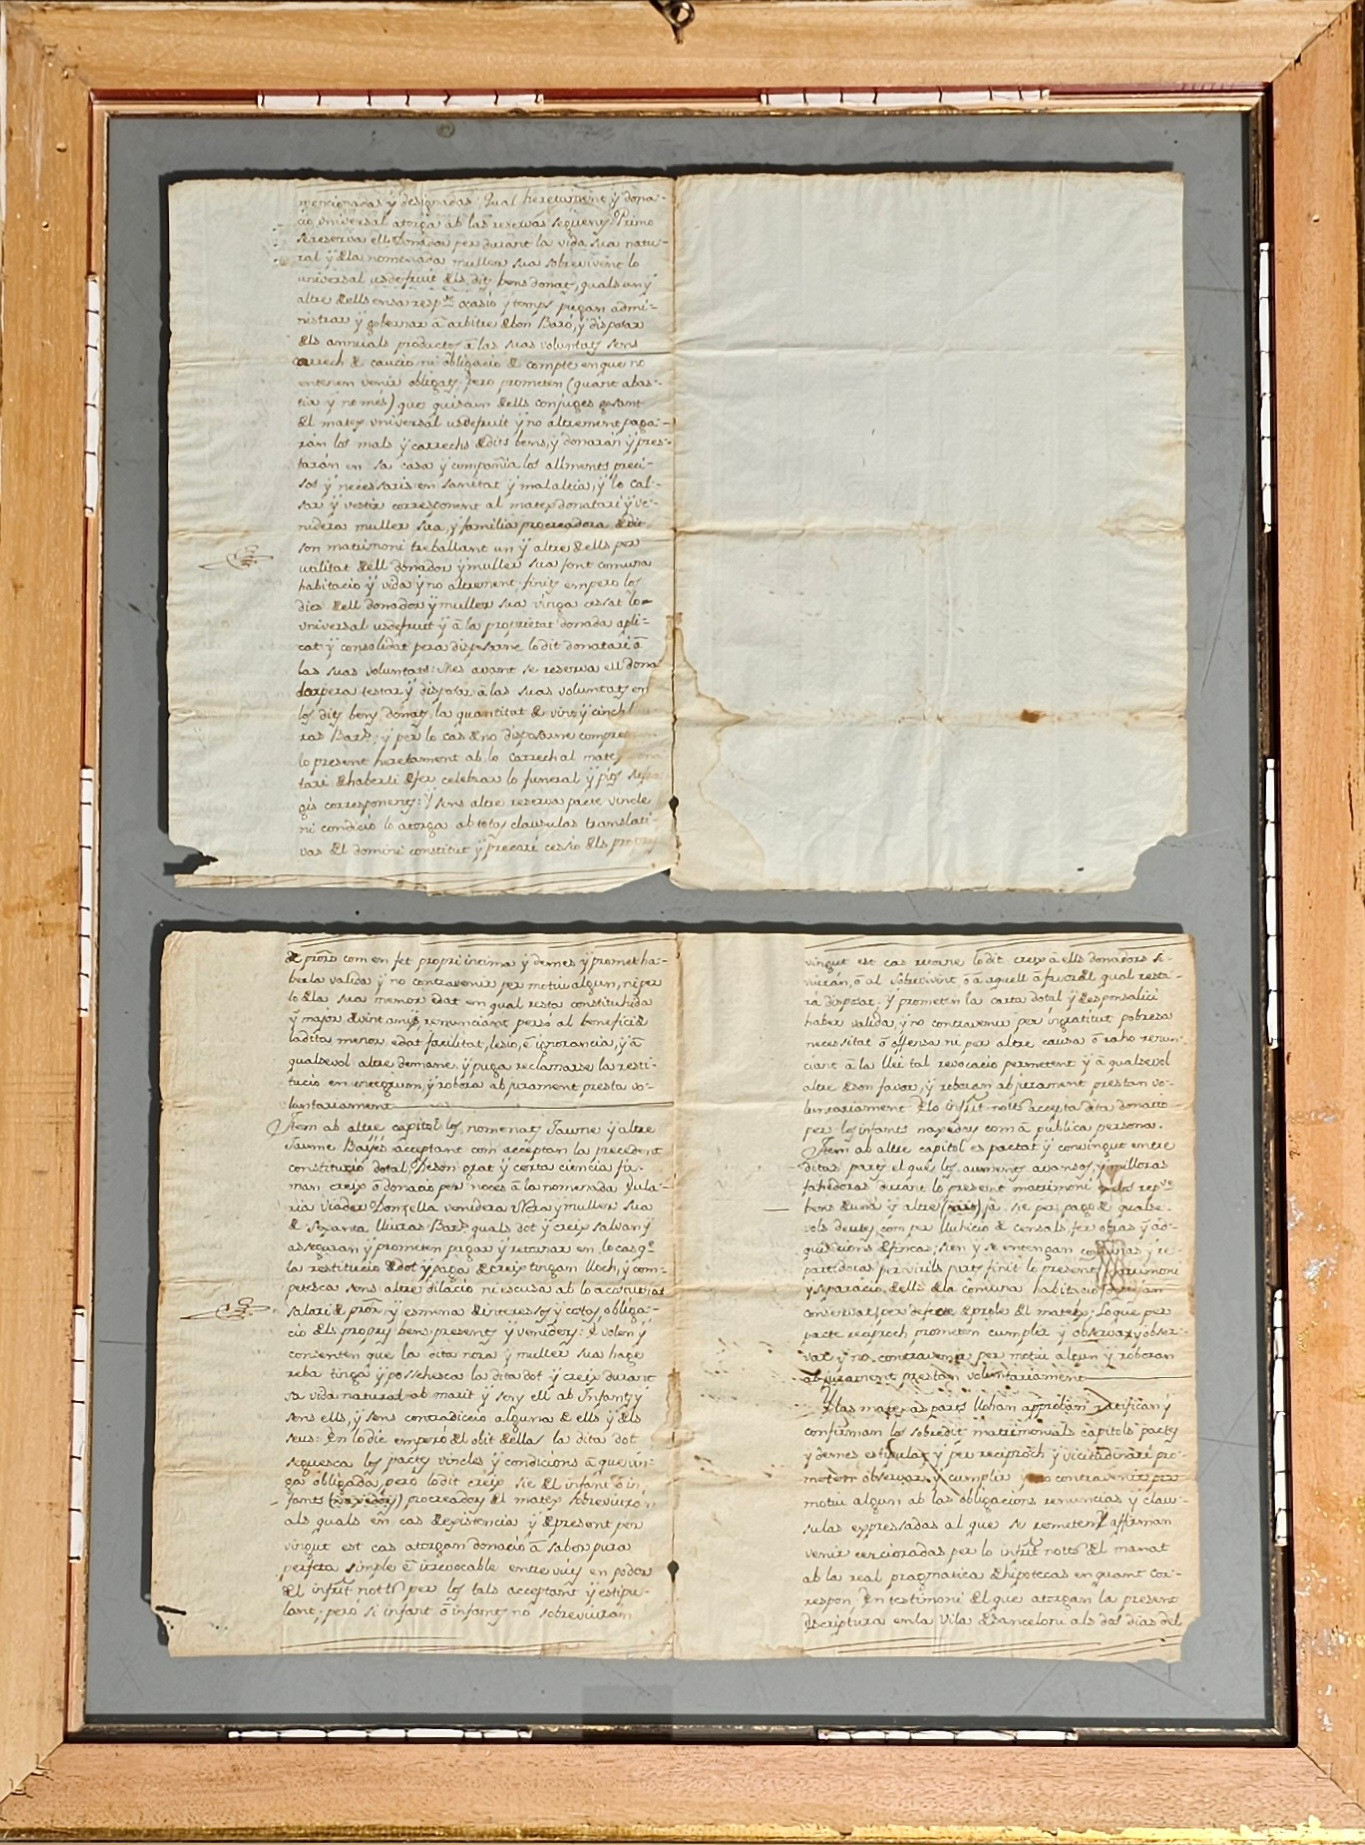 mencionadas y designadas. Qual heretament y dona-
cio universal atorga ab las reservas següents: Primo
se reserva ell donador per durant la vida sua natu-
ral y de la nomenada muller sua sobrevivint lo
universal usdefruit dels dits bens donats, quals un y
altre de ells en sa resp.ve ocasió y temps pugan admi-
nistrar y gobernar á arbitre de bon Baró, y disposar
dels annuals productes á las suas voluntats sens
carrech de caució ni obligacio de compte en que no
entenen venir obligats. Pero prometen (quant abas-
tia y no mes) que quiscun de ells conjuges gosant
del mateix universal usdefruit y no altrement paga-
rán los mals y carrechs de dits bens, y donarán y pres-
tarán en sa casa y compañia los aliments preci-
sos y necessaris en sanitat y malaltia, y lo cal-
sar y vestir corresponent al mateix donatari y ve-
nidera muller sua, y familia procreadora de dit
son matrimoni treballant un y altre de ells per
utilitat de ell donador y muller sua fent comuna
habitacio y vida y no altrement. finits empero los
dies de ell donador y muller sua vinga cessat lo
universal usdefruit y á la proprietat donada apli-
cat y consolidat pera disposarne lo dit donatari á
las suas voluntats: Mes avant se reserva ell dona
dor pera testar y disposar á las suas voluntats en
los dits bens donats la quantitat de vint y cinch
ras Bars.; y per lo cas de no disposarne
lo present heretament ab lo carrech al mateix
tari de haberli de fer celebrar lo funeral y pios
gis corresponents: Y sens altre reserva pacte vincle
ni condició lo atorga ab totas clausulas translati-
vas del domini constitut y precari cessio dels
de pror̃o com en fet propri intima y demes y promet ha-
berla valida y no contravenir per motiu algun, ni per
lo de la sua menor edat en qual resta constituhida
y major de vint anys, renunciant persó al benefici de
la dita menor edat facilitat, lesio, é ignorancia, y á
qualsevol altre demane, y puga reclamarse la resti-
tucio en integrum, y robora ab jurament presta vo-
luntariament
Item ab altre capitol los nomenats Jaume y altre
Jaume Bayés acceptant com acceptan la precedent
constitució dotal, De son grat y certa ciencia fir-
man creix ó donacio per noces á la nomenada Eula-
ria Viader Donzella venidera Nora y muller sua
de sexanta lliuras Bars. quals dot y creix salvan y
asseguran y prometen pagar y retornar en lo cas q.e
la restitució de dot y paga de creix tingan lloch, y com-
petesca sens altre dilació ni escusa ab lo acostumat
salari de pror̃ y esmena de interessos y costos obliga-
cio dels propris bens presents y venidors: E volen y
consenten que la dita nora y muller sua hage
reba tinga y possehesca la dita dot y creix durant
sa vida natural ab marit y seny ell ab Infants y
sens ells, y sens contradicció alguna de ells y dels
seus: En lo die empero del obit de ella la dita dot
seguesca los pactes vincles y condicions á que vin-
ga obligada, pero lo dit creix sie del infant ó in
fants procreadors del mateix sobreviurán
als quals en cas de existencia y de present per
vingut est cas atorgan donació á sabor pura
perfeta simple é irrevocable entre vius en poder
del infr̃it nottº per los tals acceptant y estipu-
lant; pero si infant ó infants no sobreviuran
vingut est cas retorne lo dit creix á ells donadors si
viurán, ó al sobrevivint ó á aquell á favor del qual resta-
rá disposat: Y prometen la carta dotal y de esponsalici
haber valida, y no contravenir per ingratitut pobresa
necessitat ó offensa ni per altre causa ó raho renun-
ciant á la llei tal revocacio permetent y á qualsevol
altre de son favor, y roboran ab jurament prestan vo-
luntariament. E lo infr̃it nottº accepta dita donacio
per los infants naxedors com á publica persona.
Item ab altre capitol es pactat y convingut entre
ditas parts el que los aumens avansos, y milloras
fahedoras durant lo present matrimoni en los resp.ve
bens de una y altre ja sie per pago de qualse-
vols deutes, com per lluhició de censals, fer obras y ad-
quisicions de fincas; sien y se entengan comunas y re-
partidoras per iguals parts finit lo present matrimoni
y separacio de ells de la comuna habitacio
conservats per defecte de prole del mateix. Lo que per
pacte reciproch prometen cumplir y observar y obser-
var y no contravenir per motiu algun y roboran
ab jurament prestan voluntariament
Y las mateixas parts lloan approban ratifican y
confirman los sobredit matrimonials capitols pactes
y demes estipulat y per reciproch y vicissitudinari pro-
meten observar y cumplir y no contravenir per
motiu algun ab las obligacions renuncias y clau-
sulas expressadas al que se remeten y affirman
venir cercioradas per lo infr̃it nottº del manat
ab la real pragmatica de hipotecas en quant cor-
respon. En testimoni del que atorgan la present
Escriptura en la Vila de Banceloni als dos dias del